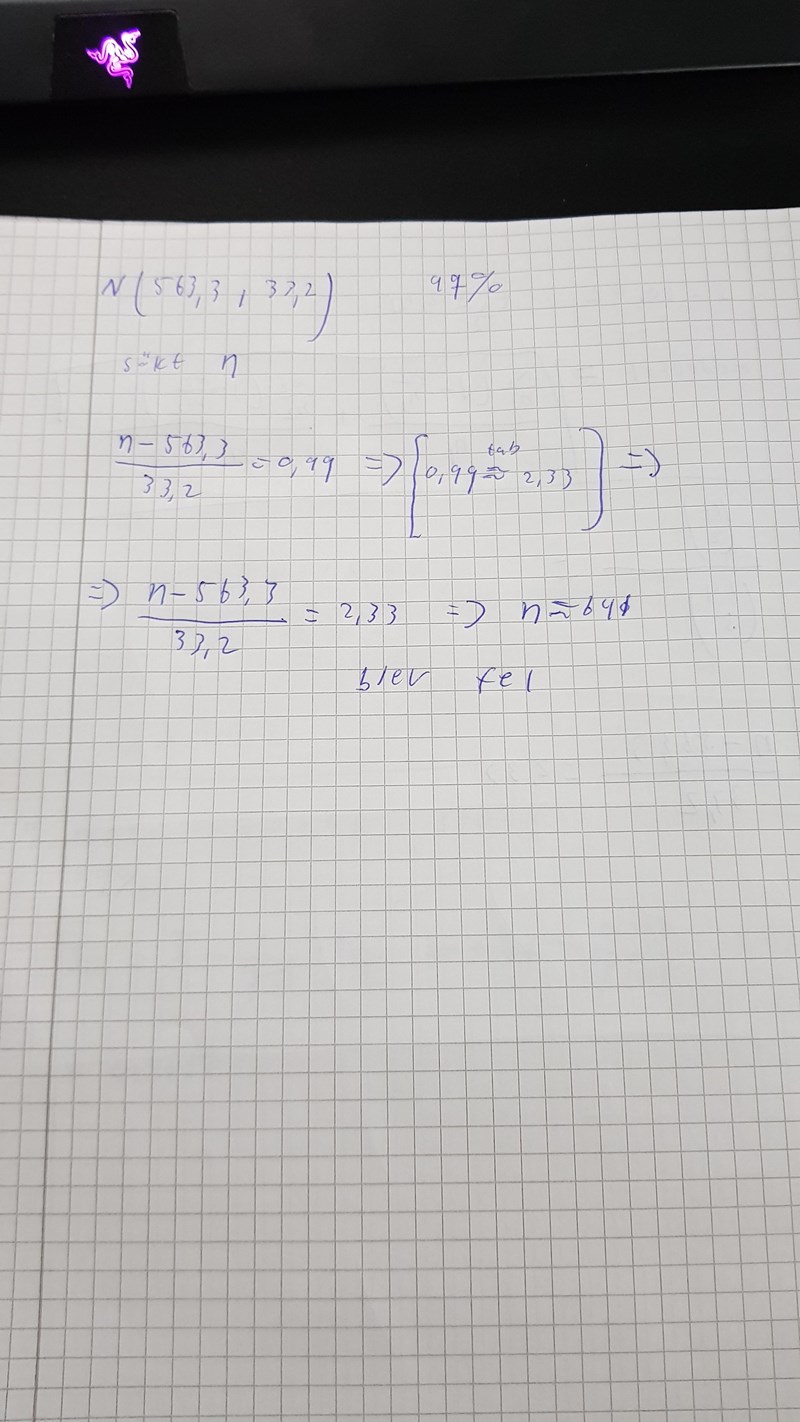 N(563,3, 33,2) 97%
sökt n
n-563,3/33,2 = 0,99 => [0,99 tab≈ 2,33] =>
=> n-563,3/33,2 = 2,33 => n≈641
blev fel